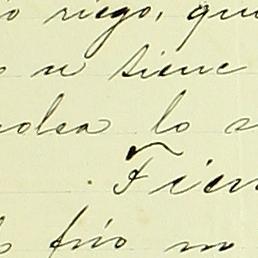 o riego, qu
se tiene
olea lo s
Tien
frio no